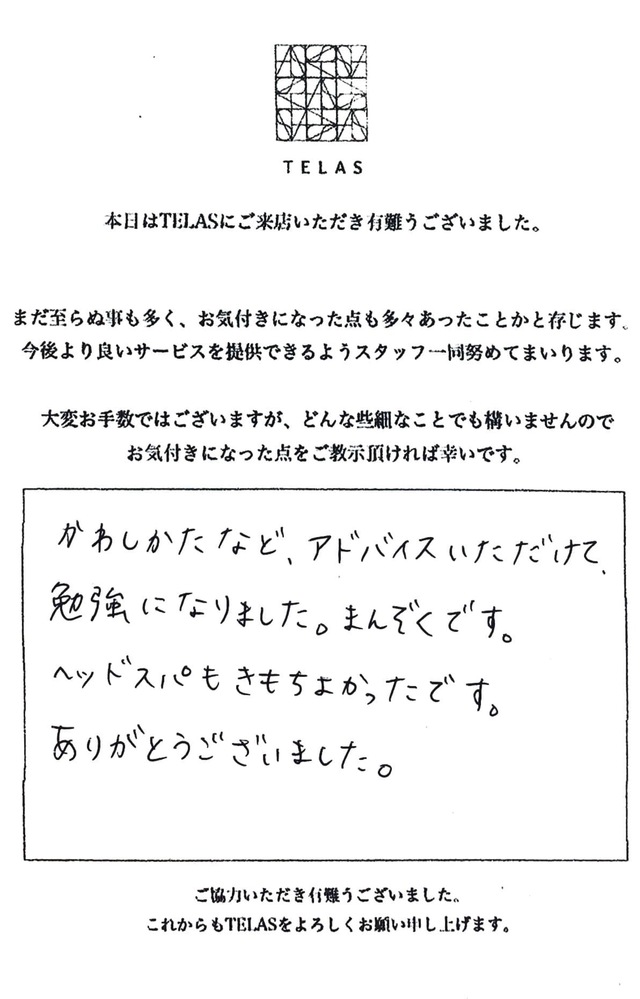 TELAS
本日はTELASにご来店いただき有難うございました。
まだ至らぬ事も多く、お気付きになった点も多々あったことかと存じます。
今後より良いサービスを提供できるようスタッフ一同努めてまいります。
大変お手数ではございますが、どんな些細なことでも構いませんので
お気付きになった点をご教示頂ければ幸いです。
かわしかたなど、アドバイスいただけて、
勉強になりました。まんぞくです。
ヘッドスパもきもちよかったです。
ありがとうございました。
ご協力いただき有難うございました。
これからもTELASをよろしくお願い申し上げます。